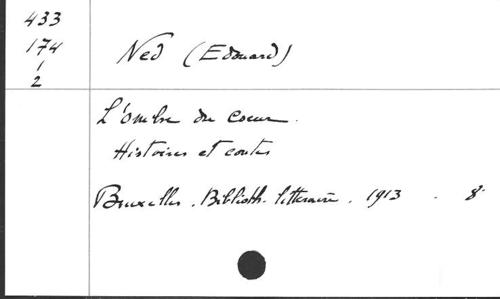 433
174
1
2
Ned (Edouard)
L'ombre du coeur.
Histoires et contes
Bruxelles. Biblioth. littéraire. 1913. 8°